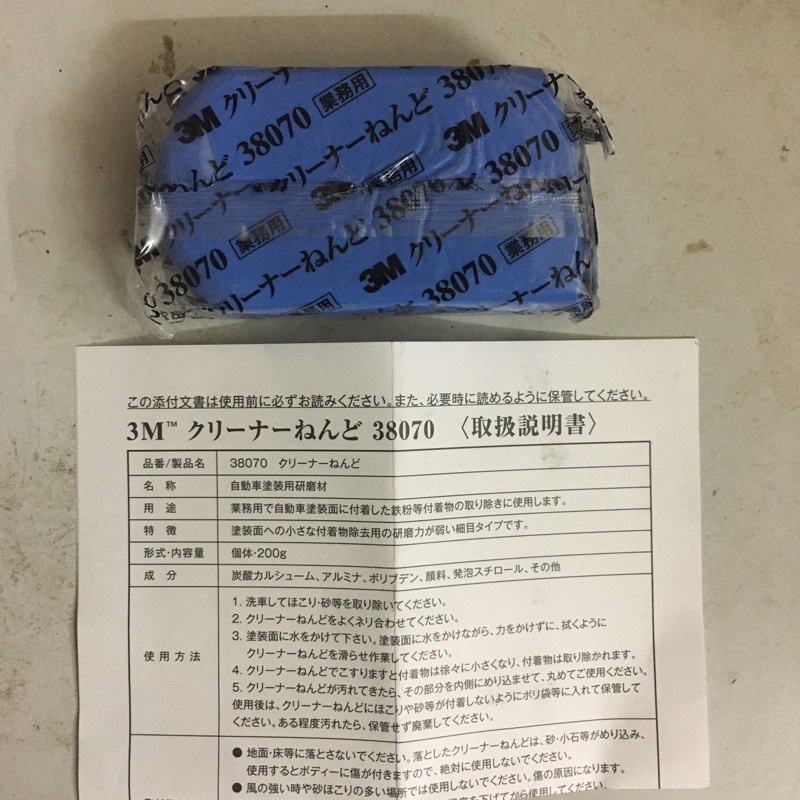 3M クリーナーねんど 38070 業務用
3M クリーナーねんど 38070 業務用
この添付文書は使用前に必ずお読みください。また、必要時に読めるように保管してください。
3M™ クリーナーねんど 38070 〈取扱説明書〉
品番/製品名 38070 クリーナーねんど
名 称 自動車塗装用研磨材
用 途 業務用で自動車塗装面に付着した鉄粉等付着物の取り除きに使用します。
特 徴 塗装面への小さな付着物除去用の研磨力が弱い細目タイプです。
形式・内容量 個体・200g
成 分 炭酸カルシューム、アルミナ、ポリブデン、顔料、発泡スチロール、その他
使用方法
1. 洗車してほこり・砂等を取り除いてください。
2. クリーナーねんどをよくネリ合わせてください。
3. 塗装面に水をかけて下さい。塗装面に水をかけながら、力をかけずに、拭くように
クリーナーねんどを滑らせ作業してください。
4. クリーナーねんどでこすりますと付着物は徐々に小さくなり、付着物は取り除かれます。
5. クリーナーねんどが汚れてきたら、その部分を内側にめり込ませて、丸めてご使用ください。
使用後は、クリーナーねんどにほこりや砂等が付着しないようにポリ袋等に入れて保管して
ください。ある程度汚れたら、保管せず廃棄してください。
● 地面・床等に落とさないでください。落としたクリーナーねんどは、砂・小石等がめり込み、
使用するとボディーに傷が付きますので、絶対に使用しないでください。
● 風の強い時や砂ぼこりの多い場所では使用しないでください。傷の原因になります。
を下げてから使用してください。